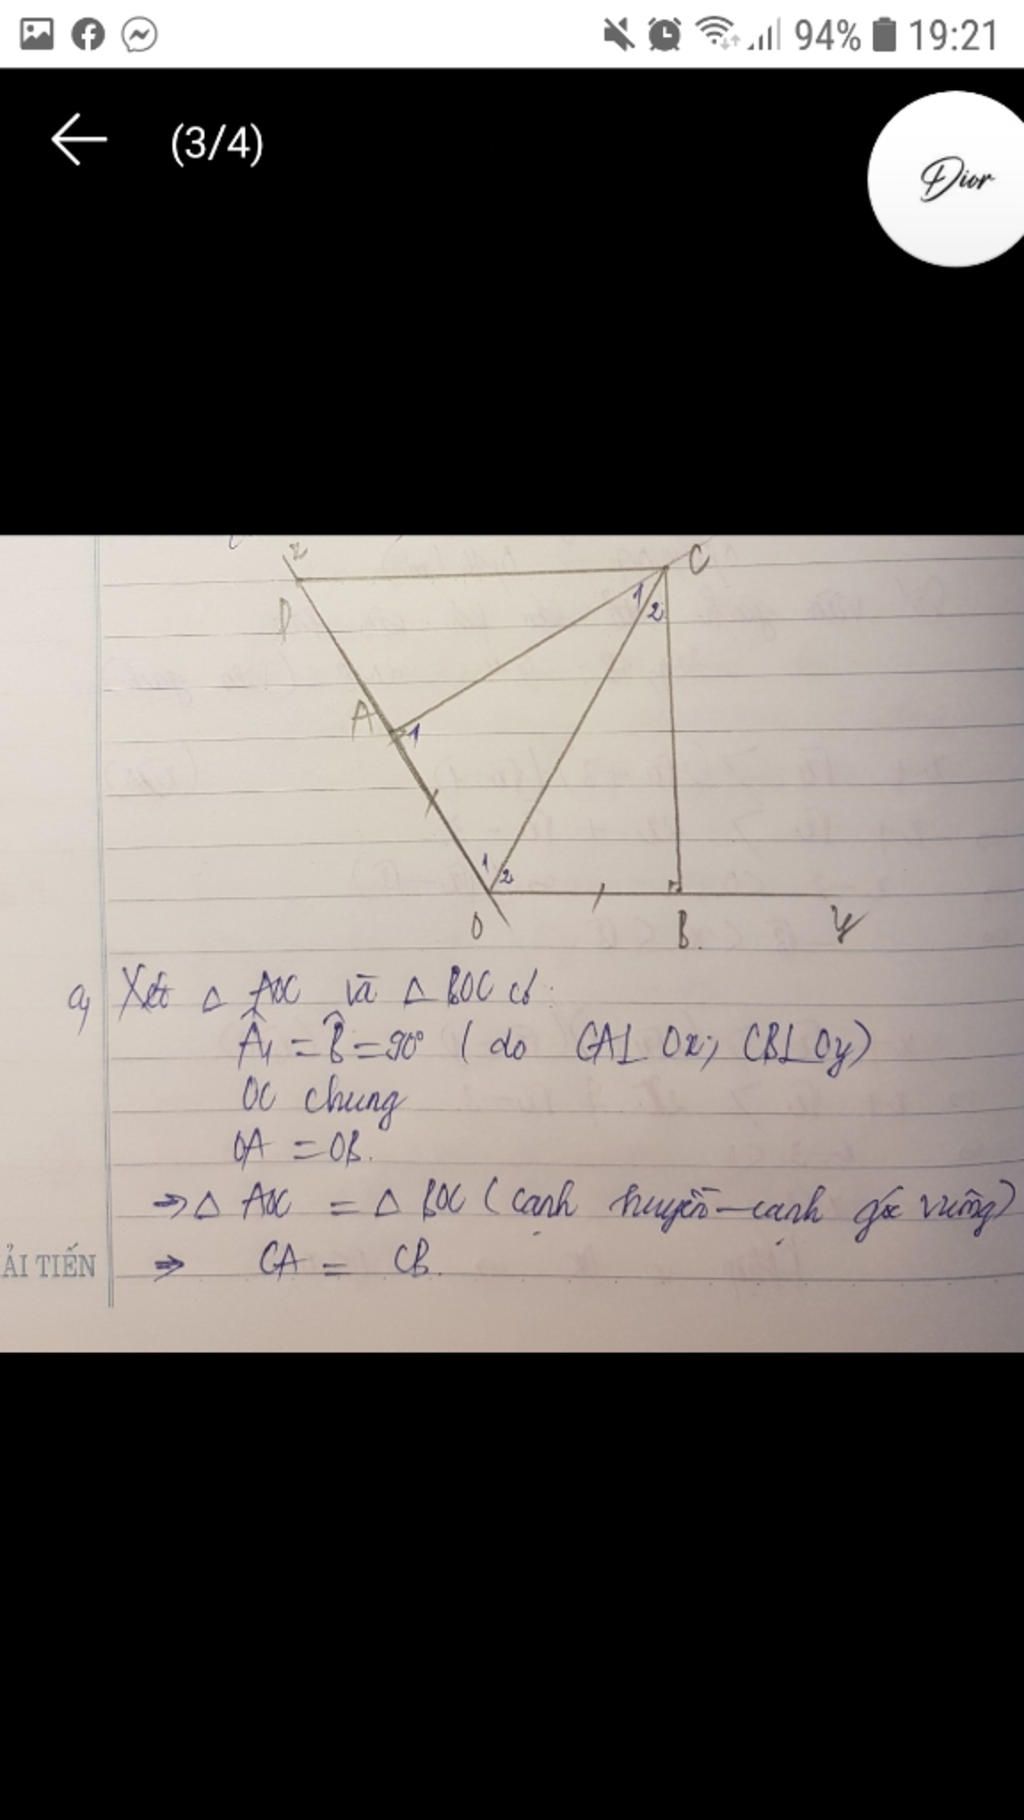 94% 19:21
(3/4)
Dior
x
C
D
1
2
A
1
1
2
O
B.
y
a, Xét △ AOC và △ BOC có:
Â₁ = B̂ = 90° ( do CA⊥Ox; CB⊥Oy)
OC chung
OA = OB.
⇒ △ AOC = △ BOC ( cạnh huyền - cạnh góc vuông)
ẢI TIẾN ⇒ CA = CB.